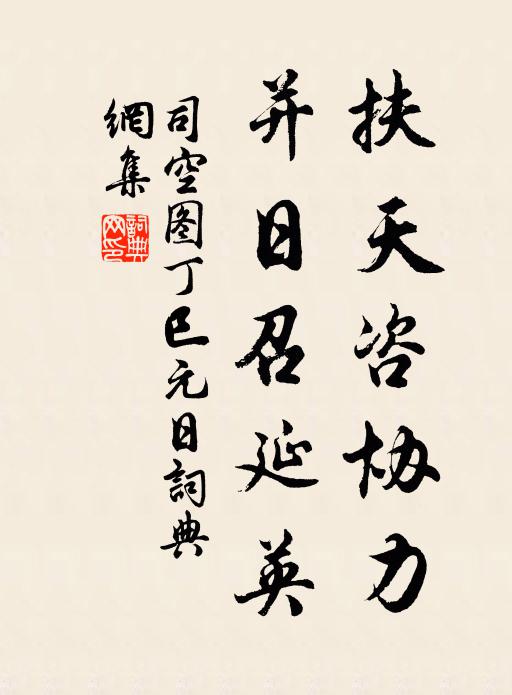 扶天咨协力
并日召延英
司空图丁巳元日詞典
網集
詞典網印